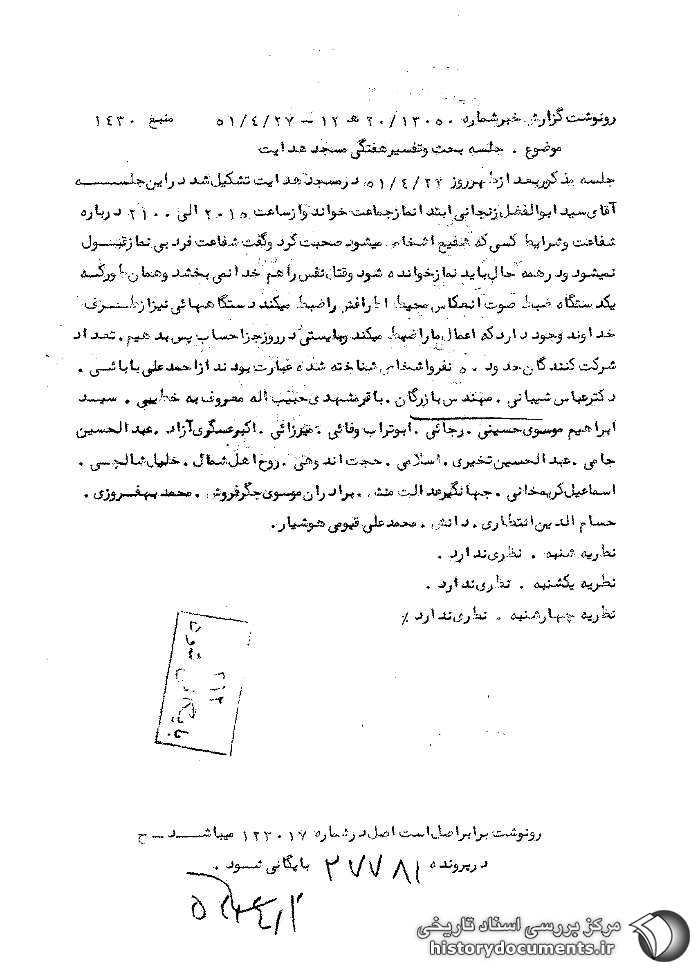 رونوشت گزارش خبر شماره ۲۰/۱۳۰۵۰ ﻫ ۱۲ – ۵۱/۴/۲۷ منبع ۱۴۳۰
موضوع . جلسه بحث و تفسیر هفتگی مسجد هدایت
جلسه مذکور بعد از ظهر روز ۵۱/۴/۲۷ در مسجد هدایت تشکیل شد در این جلسه
آقای سید ابوالفضل زنجانی ابتدا نماز جماعت خواند و از ساعت ۲۰۱۵ الی ۲۱۰۰ درباره
شفاعت و شرایط کسی که شفیع اشخاص میشود صحبت کرد و گفت شفاعت فرد بی نماز قبول
نمیشود و در همه حال باید نماز خوانده شود و قتل نفس را هم خدا نمی بخشد و همان طور که
یکدستگاه ضبط صوت انعکاس محیط اطرافش را ضبط میکند دستگاههائی نیز از طرف
خداوند وجود دارد که اعمال ما را ضبط میکند و بایستی در روز جزا حساب پس بدهیم . تعداد
شرکت کنندگان حدود ۵۰ نفر و اشخاص شناخته شده عبارت بودند از احمد علی بابائی .
دکتر عباس شیبانی . مهندس بازرگان . باقر مشهدی حبیب اله معروف به خطیبی . سید
ابراهیم موسوی حسینی . رجائی . ابوتراب وفائی . میرزائی . اکبر عسگری آزاد . عبدالحسین
جامی . عبدالحسین تخیری . اسلامی . حجت اندوهی . روح اهل شمال . خلیل شالچسی .
اسماعیل کریمخانی . جهانگیر عدالت منش . برادران موسوی جگرفروش . محمد بهفروزی .
حسام الدین انتظاری . دانش . محمد علی قیومی هوشیار .
نظریه شنبه . نظری ندارد .
نظریه یکشنبه . نظری ندارد .
نظریه چهارشنبه . نظری ندارد ٪
بایگانی شود
۳۱۲
رونوشت برابر اصل است اصل در شماره ۱۲۳۰۱۷ میباشد – ح
در پرونده ۲۷۷۸۱ بایگانی شود .
مرکز بررسی اسناد تاریخی
historydocuments.ir